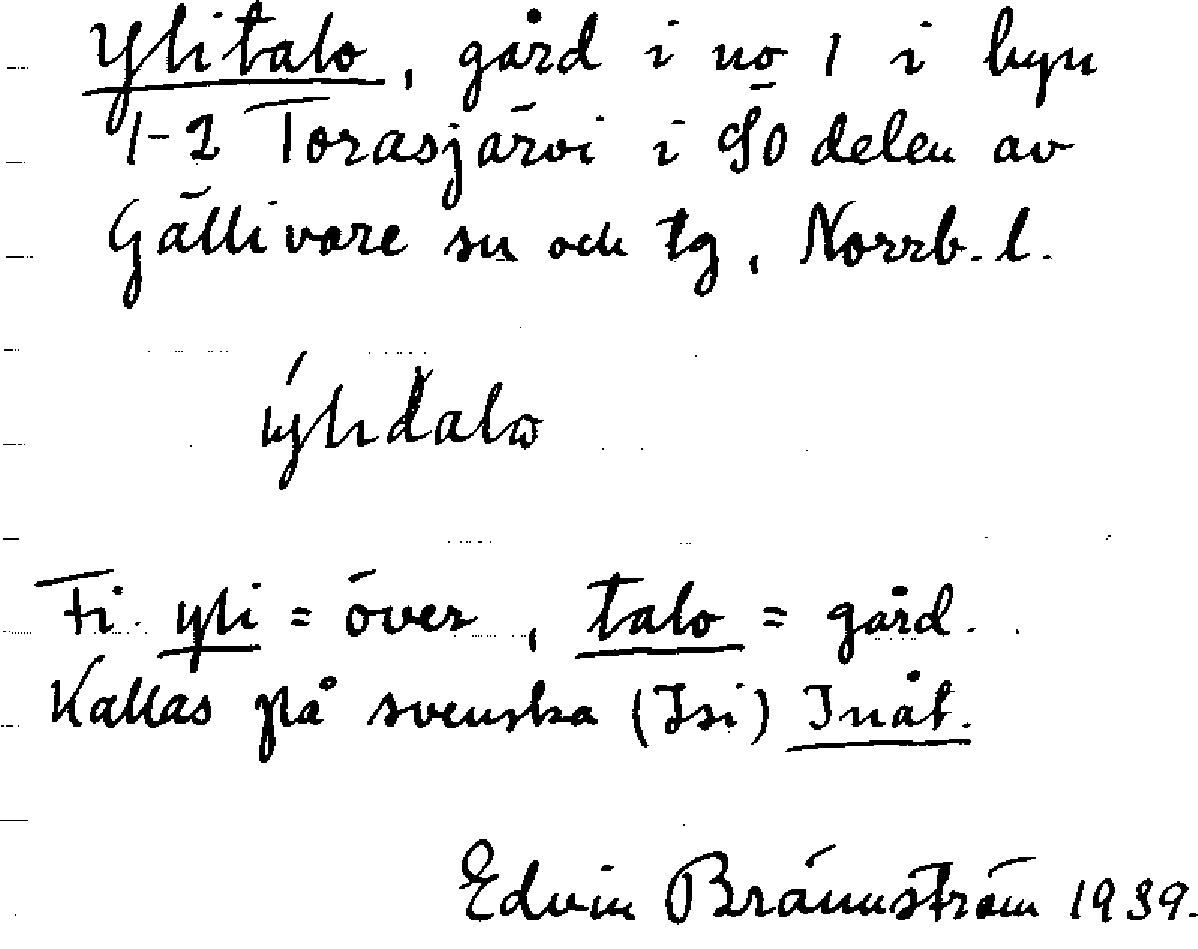 Ylitalo, gård i no 1 i byn
1-2 Torasjärvi i SO delen av
Gällivare sn och tg, Norrb. l.
Fi. yli = över, talo = gård.
Kallas på svenska (Isi) Inåt.
Edvin Brännström 1939.